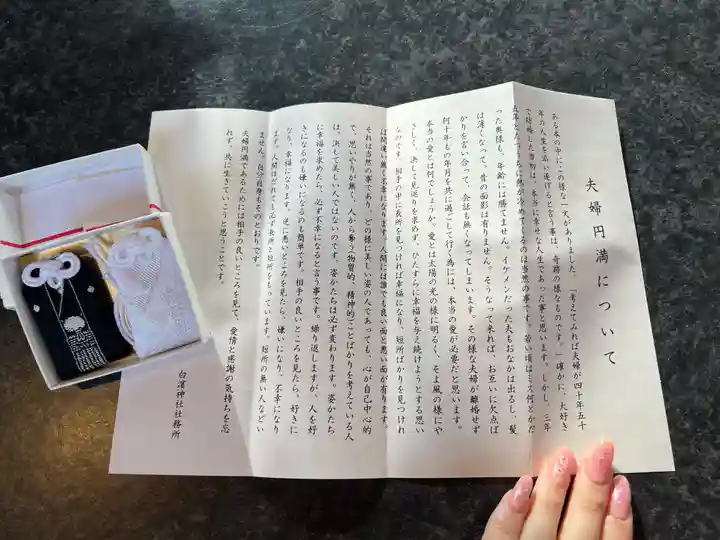 夫婦円満について
ある本の中にこの様な一文がありました。「考えてみれば夫婦が四十年五十
年の人生を添い遂げると言う事は、奇跡の様なものです。」確かに、大好き
で結婚した当初は、本当に幸せな人生であった事と思います。しかし、三年
五年とたつうちに熱が冷めてくるのは当然の事です。若い頃はミス何とかだ
った奥様も、年齢には勝てません。イケメンだった夫もおなかは出るし、髪
は薄くなって、昔の面影は有りません。そうなって来れば、お互いに欠点ば
かりを言い合って、会話も無くなってしまいます。その様な夫婦が離婚せず
何十年もの年月を共に過ごして行く為には、本当の愛が必要だと思います。
本当の愛とは何でしょうか。愛とは太陽の光の様に明るく、そよ風の様にや
さしく、決して見返りを求めず、ひたすらに幸福を与え続けようとする思い
なのです。相手の中に長所を見つければ幸福になり、短所ばかりを見つけれ
ば間違い無く不幸になります。人間には誰でも良い面と悪い面が有ります。
それは当然の事であり、どの様に美しい姿の人であっても、心が自己中心的
で、思いやりが無く、人から奪う物質的、精神的ことばかりを考えている人
は、決して美しい人ではないのです。姿かたちは必ず変わります。姿かたち
に幸福を求めたら、必ず不幸になると言う事です。繰り返しますが、人を好
きになるのも嫌いになるのも簡単です。相手の良いところを見たら、好きに
なり、幸福になります。逆に悪いところを見たら、嫌いになり、不幸になり
ます。人間はだれでも必ず長所と短所をもっています。短所の無い人などい
ません。自分自身もそのとおりです。
夫婦円満であるためには相手の良いところを見て、愛情と感謝の気持ちを忘
れず、共に生きていこうと思うことです。
白濱神社社務所